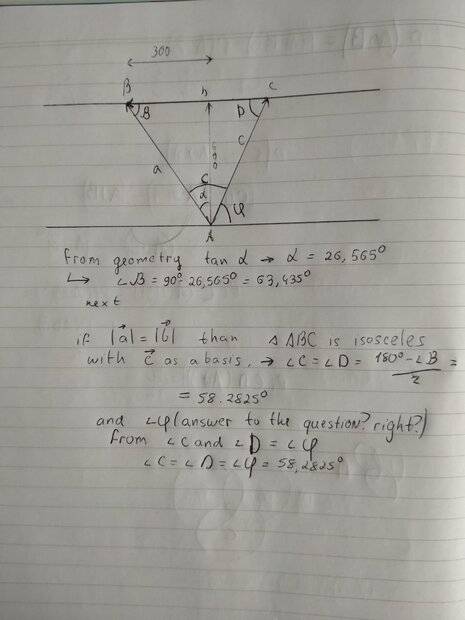 300
B h C
B D
a 600 c
C
α
φ
A
from geometry tan α → α = 26,565°
↳ ∠B = 90° - 26,565° = 63,435°
next
if |a⃗| = |b⃗| than △ ABC is isosceles
with c⃗ as a basis, → ∠C = ∠D = (180° - ∠B)/2 =
= 58.2825°
and ∠φ (answer to the question? right?)
From ∠C and ∠D = ∠φ
∠C = ∠D = ∠φ = 58,2825°